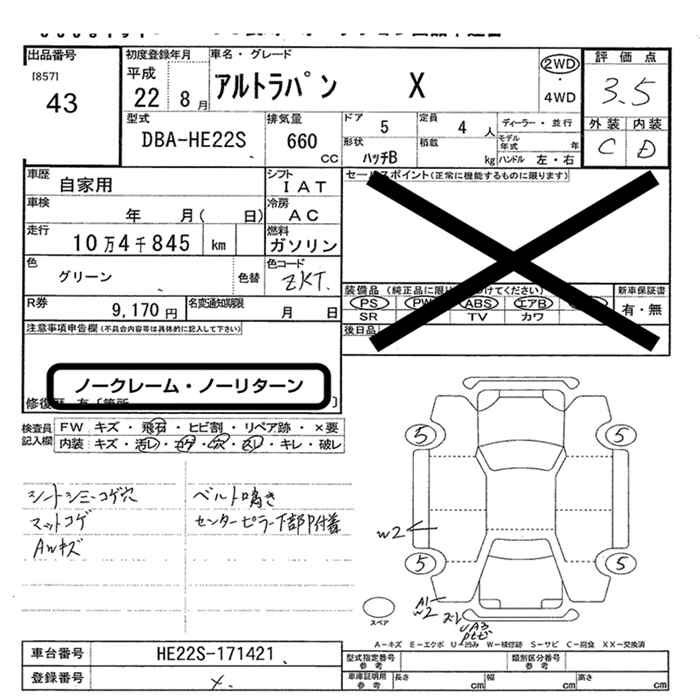 出品番号 初度登録年月 車名・グレード 評価点
[857] 平成 アルトラパン X 2WD・4WD 3.5
43 22 8月
型式 排気量 ドア 5 定員 4人 ディーラー・並行 外装 内装
DBA-HE22S 660 CC 形状 ハッチB 積載 kg モデル年式 年 C D
ハンドル 左・右
車歴 自家用 シフト IAT セールスポイント(正常に機能するものに限ります)
車検 年 月( 日) 冷房 AC
走行 10万4千845 km 燃料 ガソリン
色 グリーン 色替 色コード ZKT.
装備品 (純正品に限り 付けてください) 新車保証書
R券 9,170円 名変通知期限 月 日 PS PW ABS エアB 有・無
SR TV カワ
注意事項申告欄(不具合内容等は具体的に記入して下さい) 後日品
ノークレーム・ノーリターン
修復歴 有
検査員記入欄 FW キズ・飛石・ヒビ割・リペア跡・×要
内装 キズ・汚レ・コゲ・穴・スレ・キレ・破レ
シートシミ・コゲ穴 ベルト鳴き
マットコゲ センターピラー下部P付着
AWキズ
5 5
W2
5 5
A1
W2
A3
スペア
A-キズ E-エクボ U-凹み W-補修跡 S-サビ C-腐食 XX-交換済
車台番号 HE22S-171421 型式指定番号 参考 類別区分番号 参考
登録番号 車庫証明用 参考 長さ cm 幅 cm 高さ cm